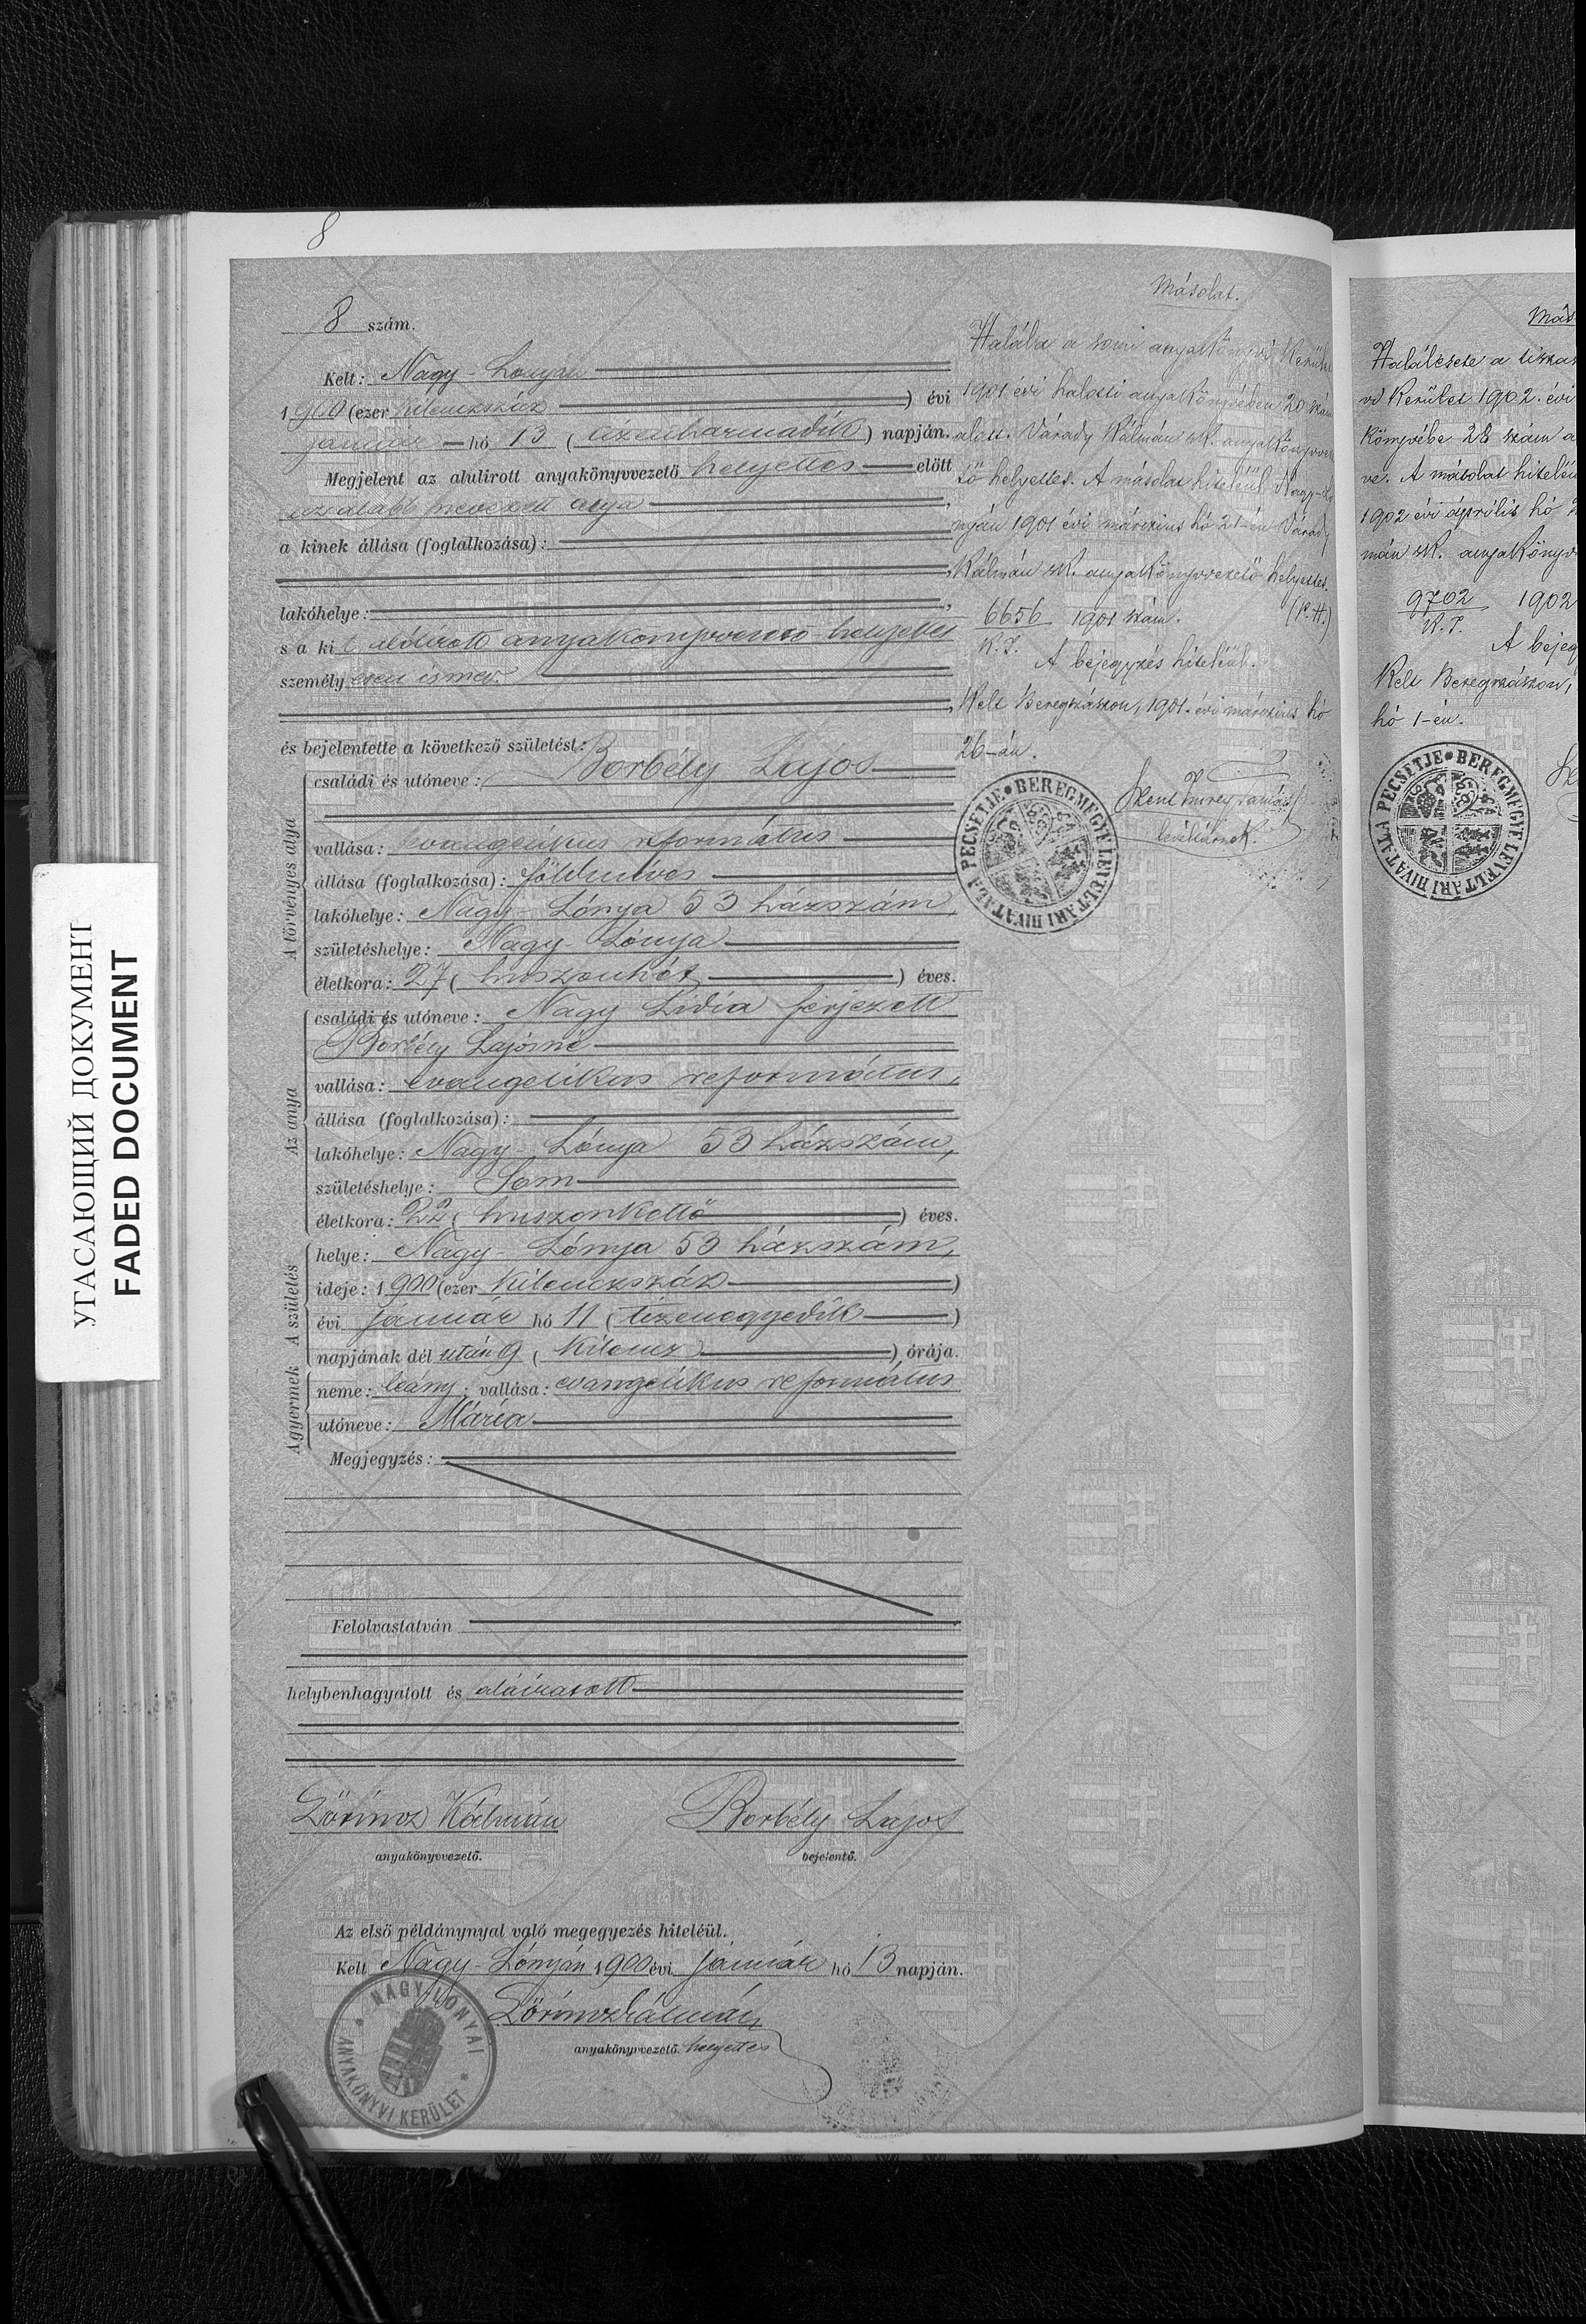 8
8 szám.
Kelt: Nagy-Lónyán
1900 (ezer kilenczszáz ) évi
január hó 13 ( tizenharmadik ) napján.
Megjelent az alulirott anyakönyvvezető helyettes előtt
az alább nevezett atya ,
a kinek állása (foglalkozása):
,
lakóhelye: ,
s a kit alólirott anyakönyvvezető helyettes
személyesen ismer.
,
és bejelentette a következő születést:
A törvényes atyja
családi és utóneve: Borbély Lajos
vallása: evangélikus református
állása (foglalkozása): földmíves
lakóhelye: Nagy-Lónya 53 házszám,
születéshelye: Nagy-Lónya
életkora: 27 ( huszonhét ) éves.
Az anya
családi és utóneve: Nagy Lidia férjezett
Borbély Lajosné
vallása: evangélikus református,
állása (foglalkozása):
lakóhelye: Nagy-Lónya 53 házszám,
születéshelye: Som
életkora: 22 ( huszonkettő ) éves.
A születés
helye: Nagy-Lónya 53 házszám,
ideje: 1900 (ezer kilenczszáz )
évi január hó 11 ( tizenegyedik )
napjának dél után 9 ( kilencz ) órája.
A gyermek
neme: leány; vallása: evangélikus református
utóneve: Mária
Megjegyzés:
Felolvastatván
helybenhagyatott és aláíratott
Lőrincz Kálmán Borbély Lajos
anyakönyvvezető. bejelentő.
Az első példánynyal való megegyezés hiteléül.
Kelt Nagy-Lónyán 1900 évi január hó 13 napján.
Lőrincz Kálmán
anyakönyvvezető helyettes
NAGY LÓNYAI
ANYAKÖNYVI KERÜLET
Másolat.
Halála a somi anyakönyvi kerület
1901 évi halotti anyakönyvében 20 szám
alatt. Várady Kálmán sk. anyakönyvveze
tő helyettes. A másolat hiteléül Nagy-Ló
nyán 1901 évi márczius hó 21-én Várady
Kálmán sk. anyakönyvvezető helyettes.
6656 1901 szám. (P.H.)
K.I.
A bejegyzés hiteléül.
Kelt Beregszászon, 1901. évi márczius hó
26-án.
Szent Imrey Tamás
levéltárnok.
BEREGMEGYE LEVÉLTÁRI HIVATALA PECSÉTJE
Más
Halálesete a tiszas
vi Kerület 1902. évi
Könyvébe 28 szám a
ve. A másolat hiteléü
1902 évi április hó
mán sk. anyakönyv
9702 1902
K.I.
A bejeg
Kelt Beregszászon,
hó 1-én.
BEREGMEGYE LEVÉLTÁRI HIVATALA PECSÉTJE
УГАСАЮЩИЙ ДОКУМЕНТ
FADED DOCUMENT